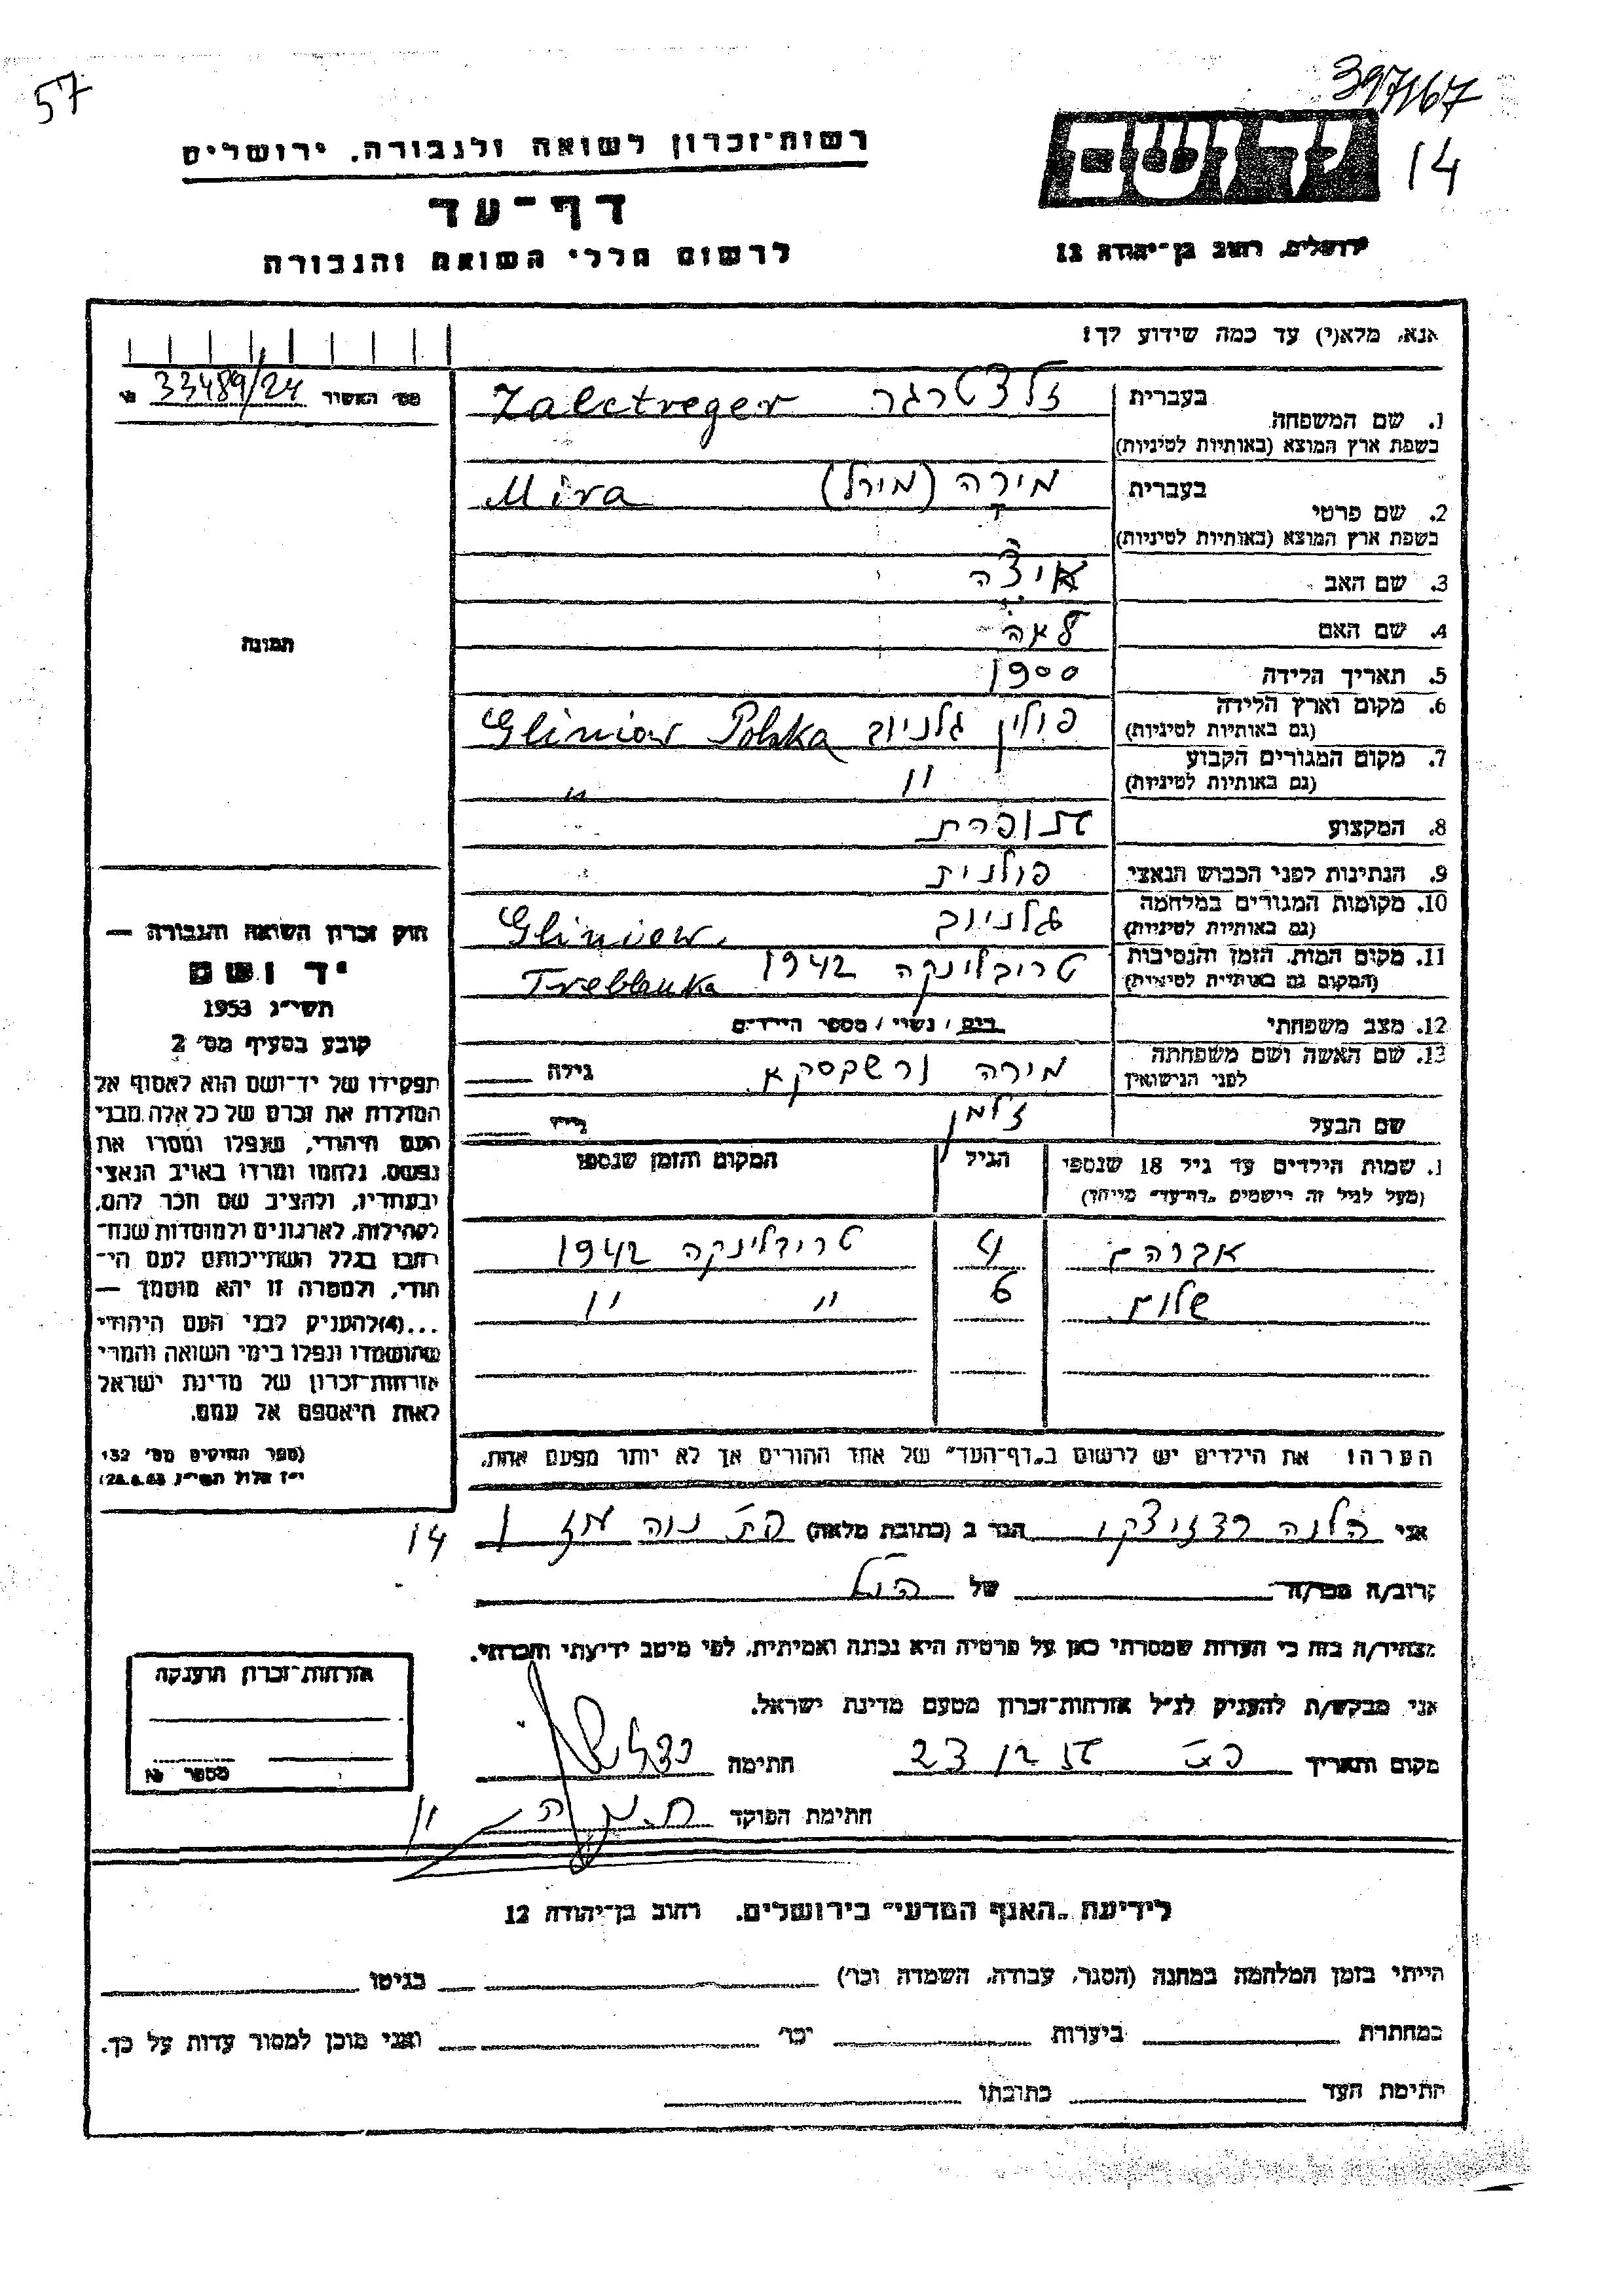 57
397167
14
רשות־זכרון לשואה ולגבורה. ירושלים
דף־עד
לרשום חללי השואה והגבורה
יד ושם
ירושלים, רחוב בן־יהודה 12
אנא, מלא(י) עד כמה שידוע לך!
מס׳ האשור 33489/24
1. שם המשפחה
בעברית
Zalctreger זלצטרגר
בשפת ארץ המוצא (באותיות לטיניות)
2. שם פרטי
בעברית
Mira מירה (מירל)
בשפת ארץ המוצא (באותיות לטיניות)
3. שם האב איצ׳ה
4. שם האם לאה
5. תאריך הלידה 1900
6. מקום וארץ הלידה
(גם באותיות לטיניות)
פולין גלניוב Gliniow Polska
7. מקום המגורים הקבוע
(גם באותיות לטיניות)
" "
8. המקצוע תופרת
9. הנתינות לפני הכבוש הנאצי פולנית
10. מקומות המגורים במלחמה
(גם באותיות לטיניות)
גלניוב Gliniow
11. מקום המות, הזמן והנסיבות
(המקום גם באותיות לטיניות)
טריבלינקה 1942 Treblinka
12. מצב משפחתי / נשוי / מספר הילדים
13. שם האשה ושם משפחתה
לפני הנישואין
מירה ורשבסקא גילה
שם הבעל זלמן גילו
תמונה
1. שמות הילדים עד גיל 18 שנספו
(מעל לגיל זה רישמים „דף־עד” מיוחד)
הגיל
המקום והזמן שנספו
אברהם 4 טריבלינקה 1942
שלום 6 " "
חוק זכרון השואה והגבורה —
יד ושם
תשי״ג 1953
קובע בסעיף מס׳ 2
תפקידו של יד־ושם הוא לאסוף אל
המולדת את זכרם של כל אלה מבני
העם היהודי, שנפלו ומסרו את
נפשם, נלחמו ומרדו באויב הנאצי
ובעוזריו, ולהציב שם וזכר להם,
לקהילות, לארגונים ולמוסדות שנח־
רבו בגלל השתייכותם לעם הי־
הודי, ולמטרה זו יהא מוסמך —
...(4)להעניק לבני העם היהודי
שהושמדו ונפלו בימי השואה והמרי
אזרחות־זכרון של מדינת ישראל
לאות היאספם אל עמם.
(ספר החוקים מס׳ 132
י״ז אלול תשי״ג 28.8.53)
הערה! את הילדים יש לרשום ב„דף־העד” של אחד ההורים אך לא יותר מפעם אחת.
אני הלנה הגר ב (כתובת מלאה) פ״ת נוה עז 1
14
קרוב/ה מכר/ה של הנ״ל
מצהיר/ה בזה כי העדות שמסרתי כאן על פרטיה היא נכונה ואמיתית, לפי מיטב ידיעתי והכרתי.
אני מבקש/ת להעניק לנ״ל אזרחות־זכרון מטעם מדינת ישראל.
מקום ותאריך פ״ת 23 חתימה
חתימת הפוקד
אזרחות־זכרון הוענקה
מספר
לידיעת „האגף המדעי” בירושלים. רחוב בן־יהודה 12
הייתי בזמן המלחמה במחנה (הסגר, עבודה, השמדה וכו׳) בגיטו
במחתרת ביערות וכו׳ ואני מוכן למסור עדות על כך.
חתימת העד כתובתו